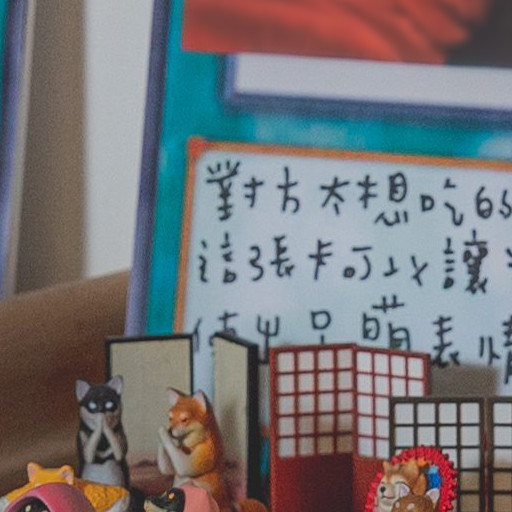 對方太想吃的
這張卡可以讓
使出只萌表情